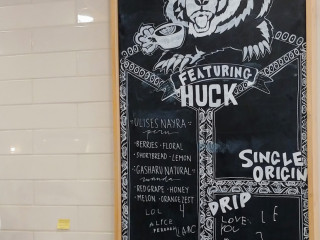 FEATURING
HUCK
ULISES NAYRA
peru
· BERRIES · FLORAL
· SHORTBREAD · LEMON
GASHARU NATURAL
· RED GRAPE · HONEY
MELON · ORANGE ZEST
LOL
ALICE
SINGLE
ORIGIN
DRIP
I LOVE
YOU